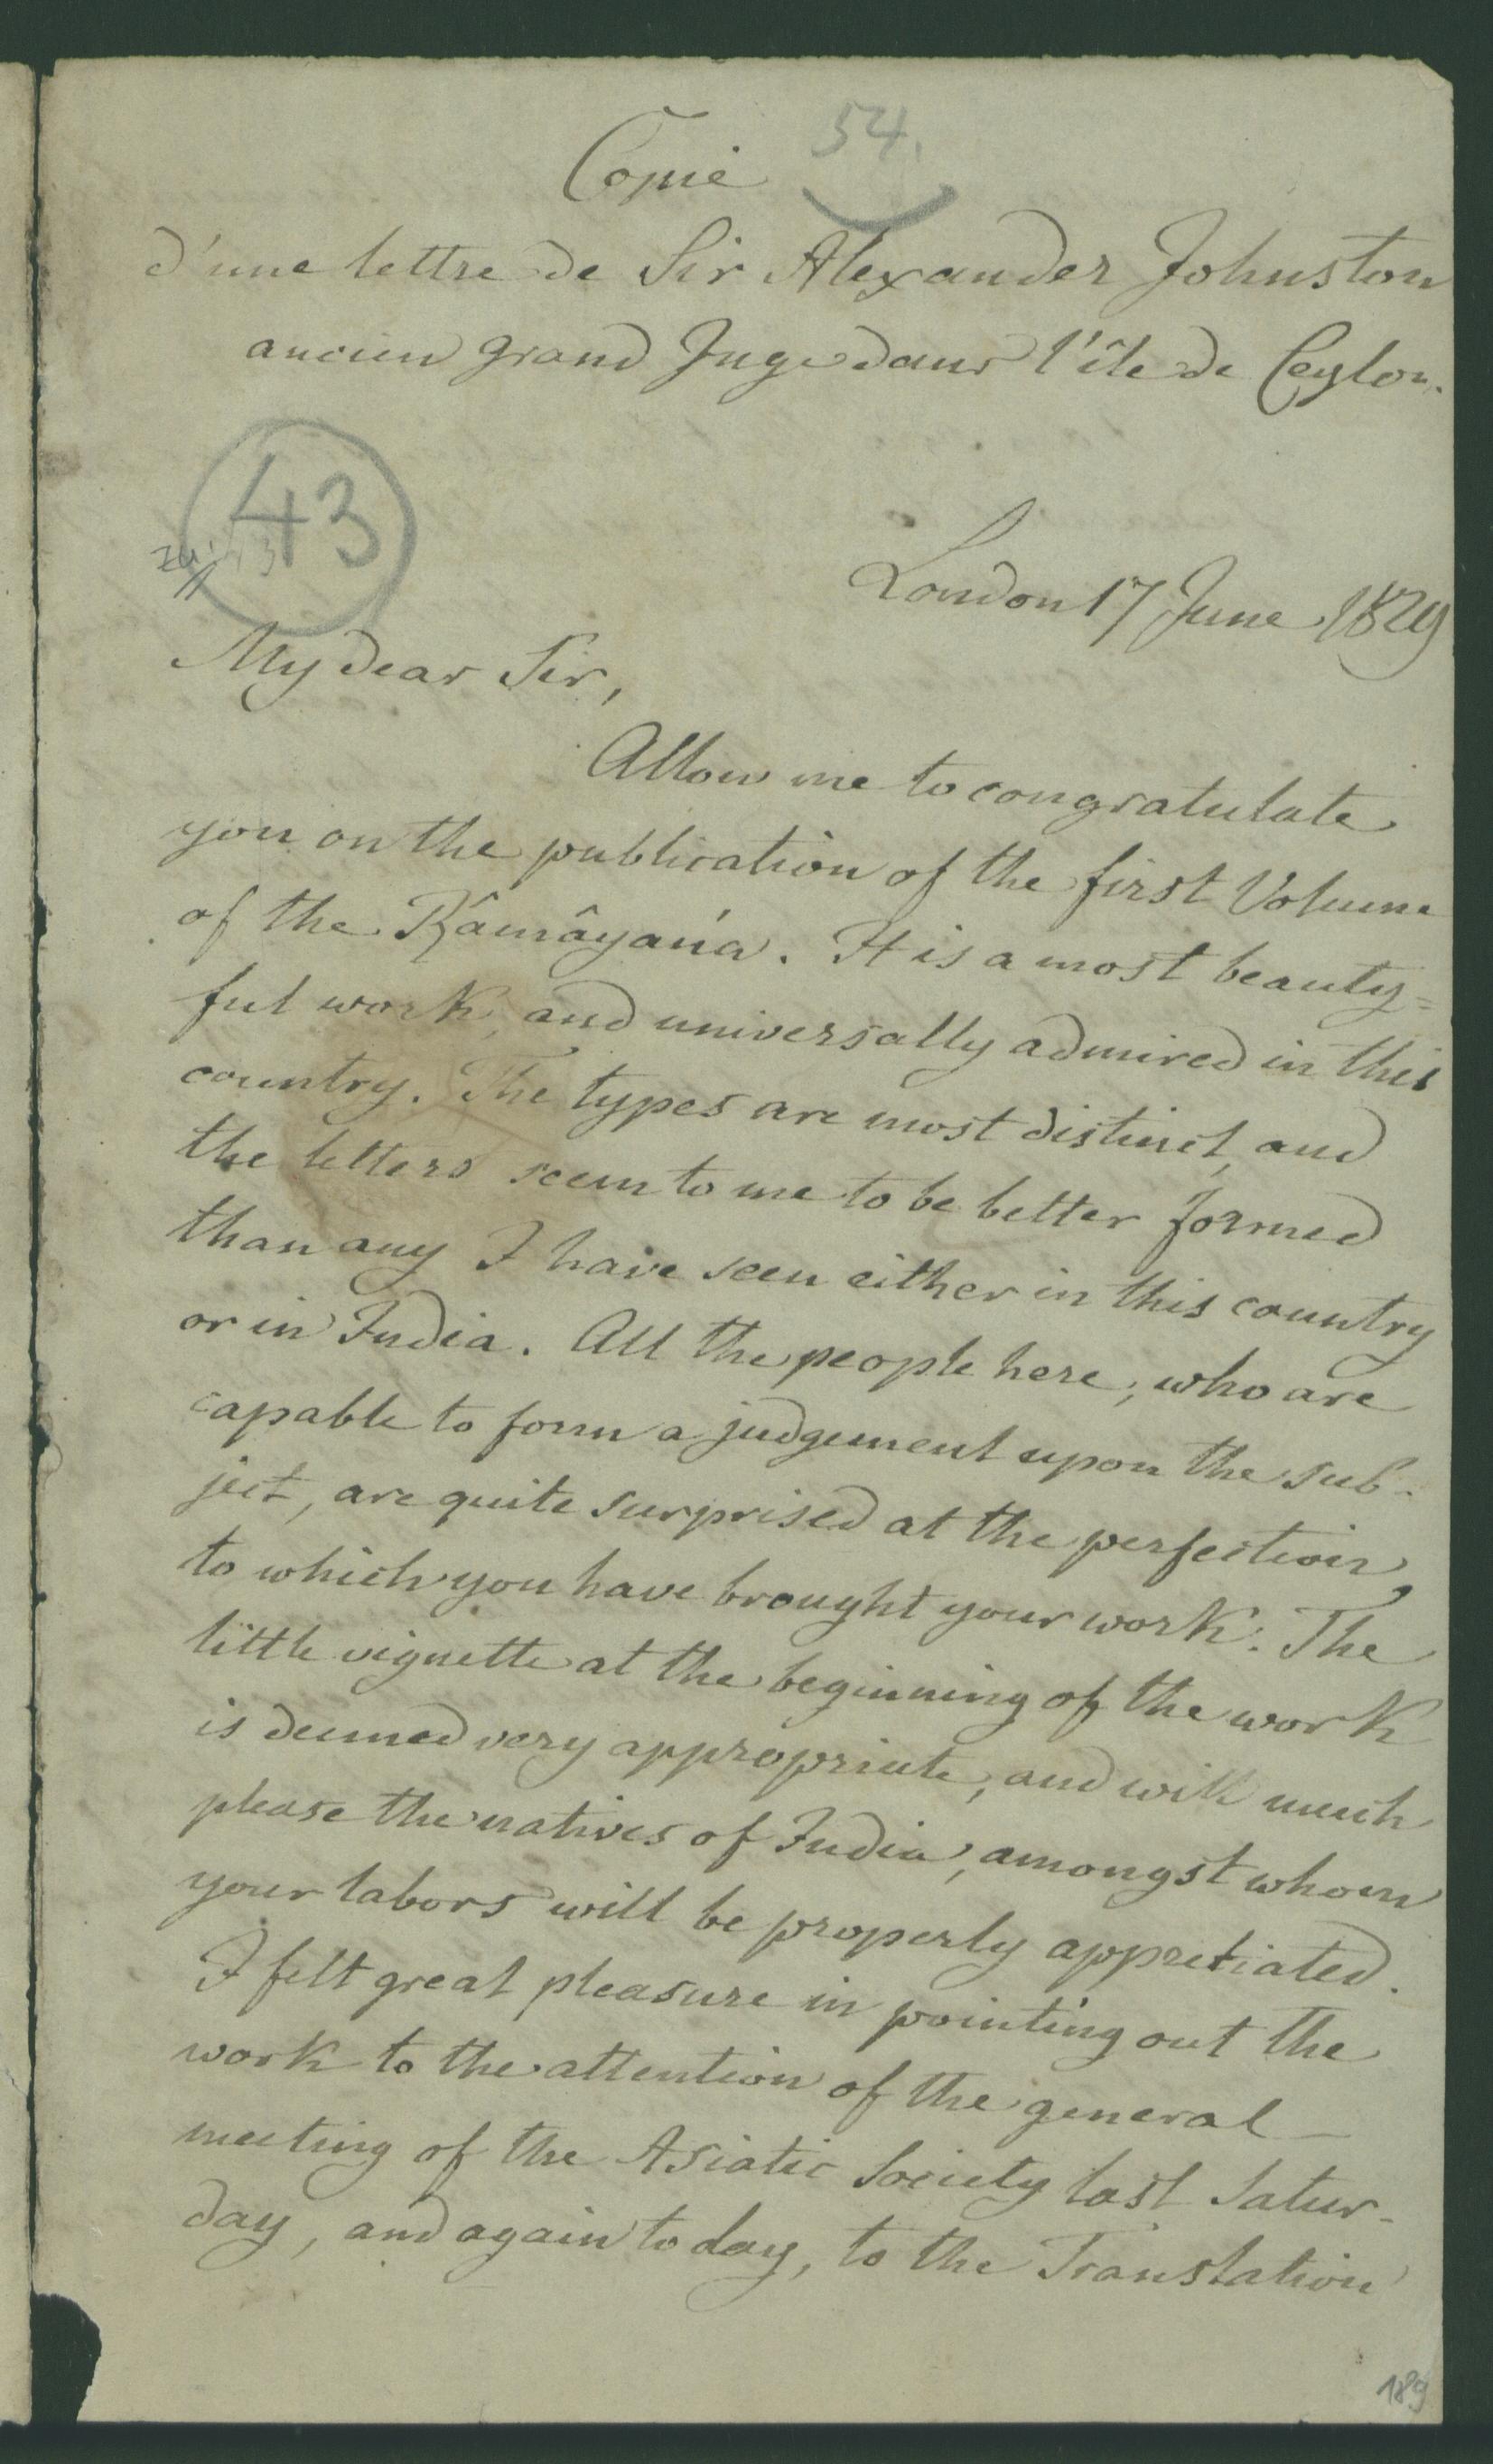 54.
Copie
d'une lettre de Sir Alexander Johnston
ancien grand Juge dans l'île de Ceylon.
43
London 17 June 1829
My dear Sir,
Allow me to congratulate
you on the publication of the first Volume
of the Râmâyańa. It is a most beauty=
ful work, and universally admired in this
country. The types are most distinct, and
the letters seem to me to be better formed
than any I have seen either in this country
or in India. All the people here, who are
capable to form a judgement upon the sub-
ject, are quite surprised at the perfection,
to which you have brought your work. The
little vignette at the beginning of the work
is deemed very appropriate, and will much
please the natives of India, amongst whom
your labors will be properly appretiated.
I felt great pleasure in pointing out the
work to the attention of the general
meeting of the Asiatic Society last Satur-
day, and again to day, to the Translation
189